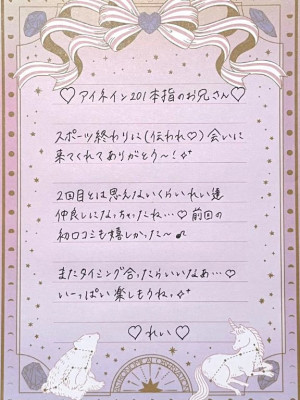 ♡アイネイン201本指のお兄さん♡
スポーツ終わりに(伝われ♡)会いに
来てくれてありがとう～!✨
2回目とは思えないくらいれい達
仲良しになっちゃったね…♡前回の
初口コミも嬉しかった～♪
またタイミング合ったらいいなあ…♡
いーっぱい楽しもうねっ✨
♡れい♡